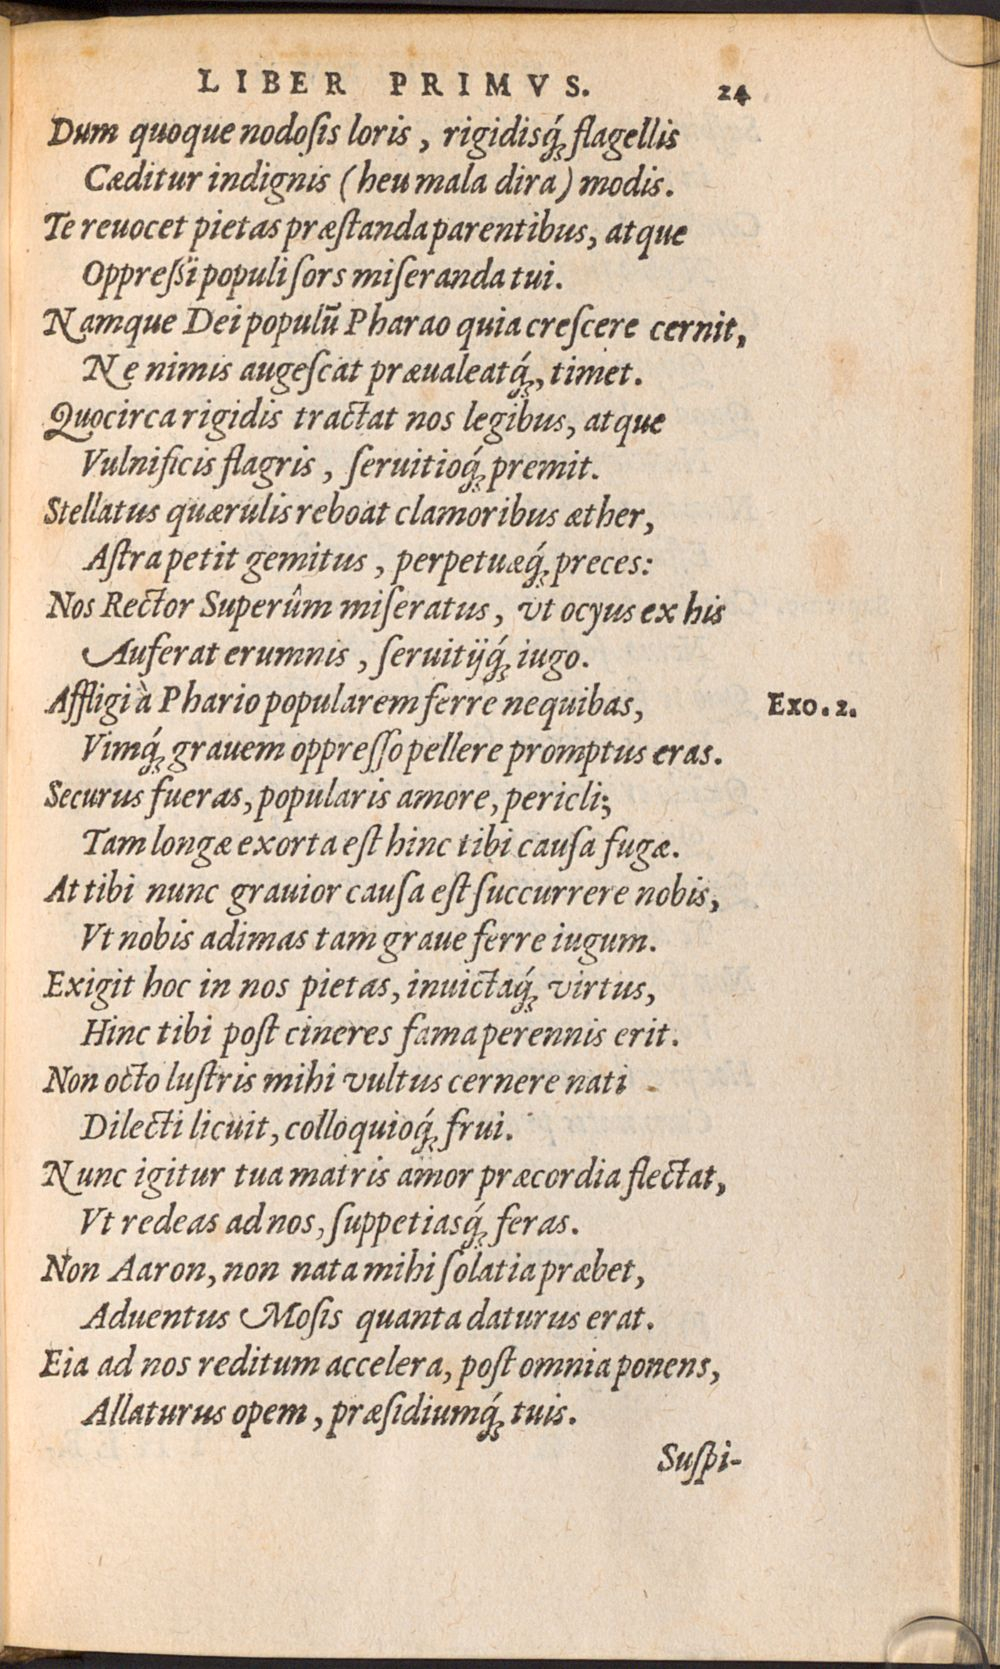 LIBER PRIMVS. 24
Dum quoque nodoſis loris, rigidisq́ꝫ flagellis
Cæditur indignis (heu mala dira) modis.
Te reuocet pietas præſtanda parentibus, atque
Oppreſsi populi ſors miſeranda tui.
Namque Dei populũ Pharao quia creſcere cernit,
Ne nimis augeſcat præualeatq́ꝫ, timet.
Quocirca rigidis tractat nos legibus, atque
Vulnificis flagris, ſeruitioq́ꝫ premit.
Stellatus quærulis reboat clamoribus æther,
Aſtra petit gemitus, perpetuæq́ꝫ preces:
Nos Rector Superûm miſeratus, vt ocyus ex his
Auferat erumnis, ſeruitijq́ꝫ iugo.
Affligi à Phario popularem ferre nequibas, Exo. 2.
Vimq́ꝫ grauem oppreſſo pellere promptus eras.
Securus fueras, popularis amore, pericli;
Tam longæ exorta eſt hinc tibi cauſa fugæ.
At tibi nunc grauior cauſa eſt ſuccurrere nobis,
Vt nobis adimas tam graue ferre iugum.
Exigit hoc in nos pietas, inuictaq́ꝫ virtus,
Hinc tibi poſt cineres fama perennis erit.
Non octo luſtris mihi vultus cernere nati
Dilecti licuit, colloquioq́ꝫ frui.
Nunc igitur tua matris amor præcordia flectat,
Vt redeas ad nos, ſuppetiasq́ꝫ feras.
Non Aaron, non nata mihi ſolatia præbet,
Aduentus Moſis quanta daturus erat.
Eia ad nos reditum accelera, poſt omnia ponens,
Allaturus opem, præſidiumq́ꝫ tuis.
Suſpi-